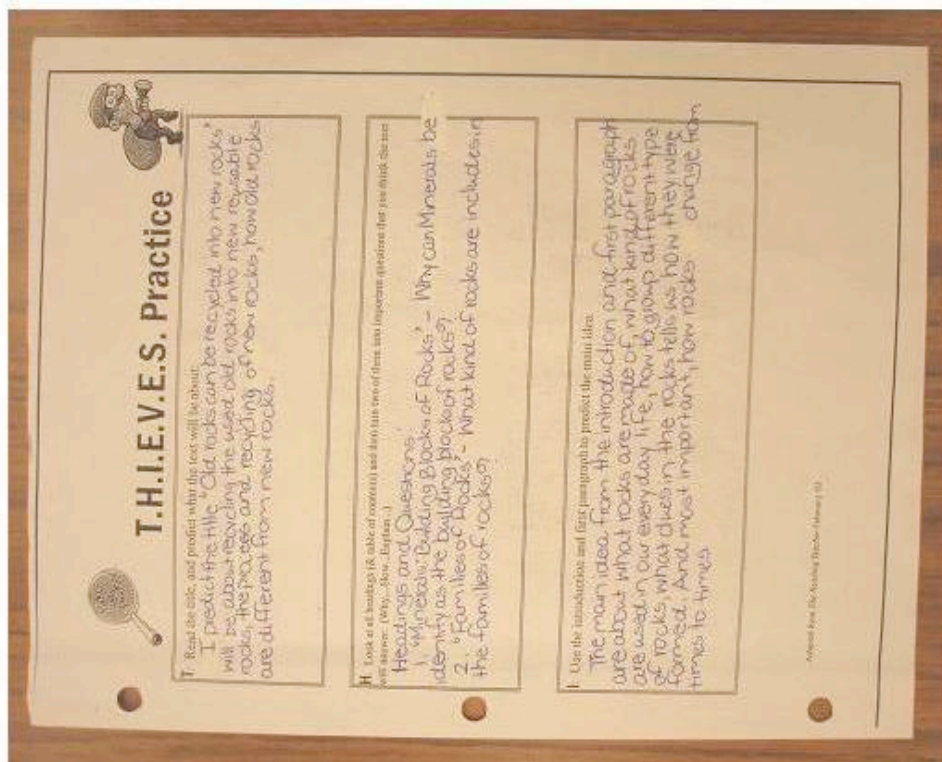 T.H.I.E.V.E.S. Practice
T Read the title, and predict what the text will be about:
I predict the title "Old rocks can be recycled into new rocks"
will be about recycling the used old rocks into new reusable
rocks, the process and recycling of new rocks, how old rocks
are different from new rocks.
H Look at all headings (& table of contents) and then turn two of them into important questions that you think the text
will answer: (Why...How...Explain...)
Headings and Questions:
1. "Minerals: Building Blocks of Rocks" - Why can Minerals be
identity as the building block of rocks?
2. "Families of Rocks" - What kind of rocks are includes in
the families of rocks?
I Use the introduction and first paragraph to predict the main idea
The main idea from the introduction and first paragraph
are about what rocks are made of, what kind of rocks
are used in our everyday life, how to group different type
of rocks what clues in the rocks tells us how they were
formed. And most important, how rocks change from
times to times.
Adapted from The Reading Teacher February 02